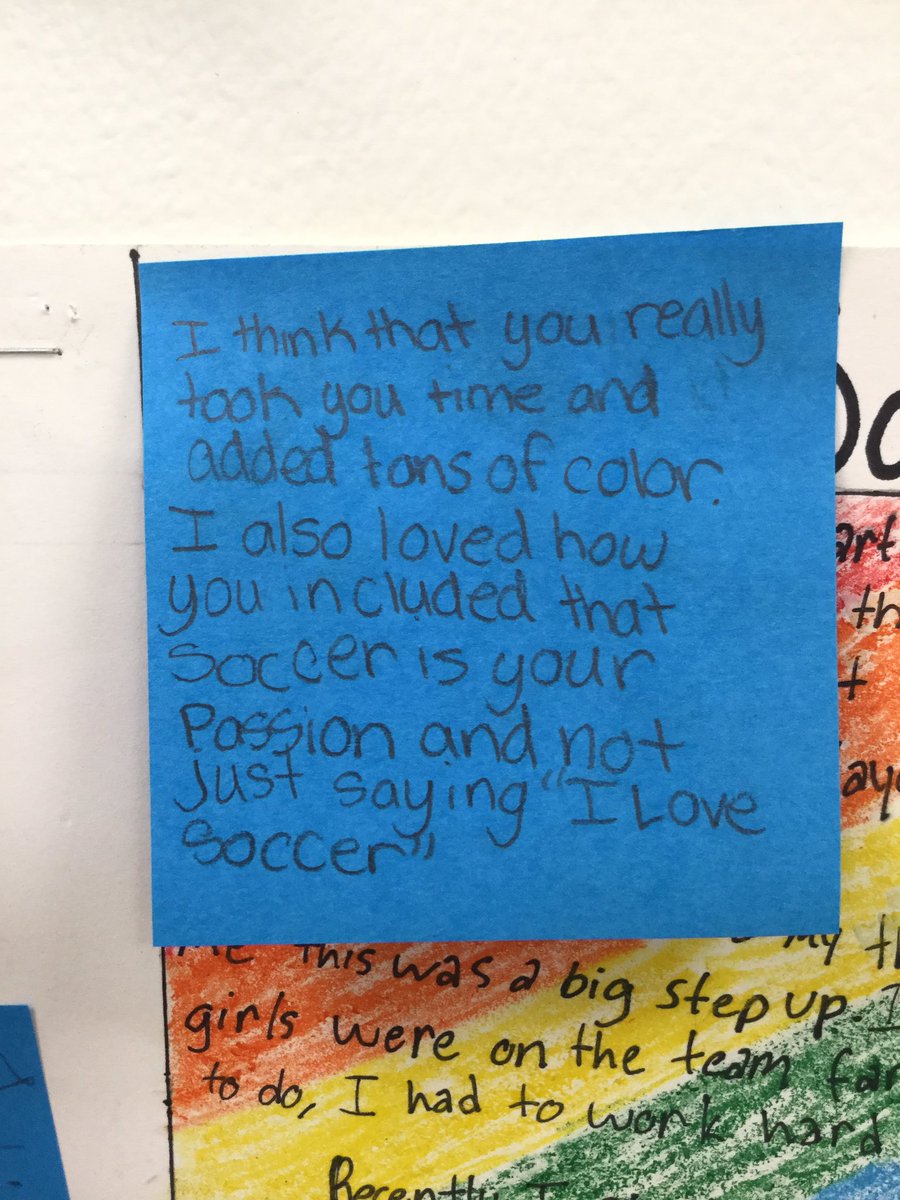 I think that you really
took you time and
added tons of color.
I also loved how
you included that
soccer is your
Passion and not
Just saying "I Love
soccer"
this was a big step up. I
girls were on the team
to do, I had to work hard
Recently I